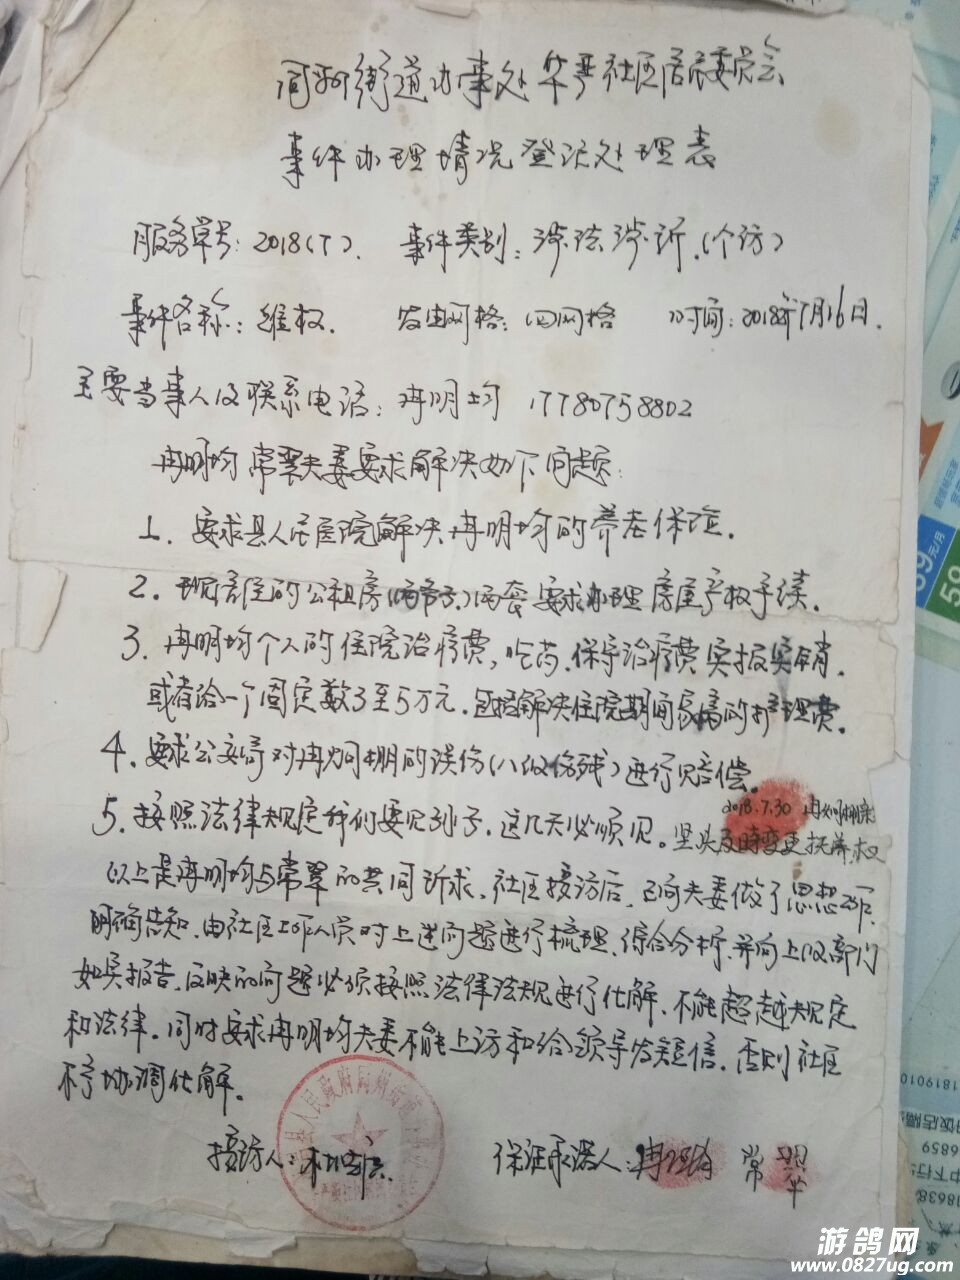 同州街道办事处华严社区居民委员会
事件办理情况登记处理表
服务单号：2018(7). 事件类别：涉法涉诉.(个访)
事件名称：维权. 发由网格：四网格 时间：2018年7月16日.
主要当事人及联系电话：冉明均 17780758802
冉明均常翠夫妻要求解决如下问题：
1. 要求县人民医院解决冉明均的养老保险.
2. 现居住的公租房 两套 要求办理房屋产权手续.
3. 冉明均个人的住院治疗费，吃药.保守治疗费实报实销.
或者给一个固定数3至5万元.包括解决住院期间 的护理费.
4. 要求公安局对冉炯棚的误伤(八级伤残)进行赔偿.
2018.7.30
5. 按照法律规定我们要见孙子.这几天必须见。 及時变更抚养权
以上是冉明均与常翠的共同诉求.社区接访后，已向夫妻做了思想工作.
明确告知.由社区工作人员对上述问题进行梳理.综合分析.并向上级部门
如实报告.反映的问题必须按照法律法规进行化解.不能超越规定
和法律.同时要求冉明均夫妻不能上访和给领导发短信.否则社区
不予协调化解.
接访人： 保证承诺人：冉明均 常翠
游鸽网
www.0827ug.com